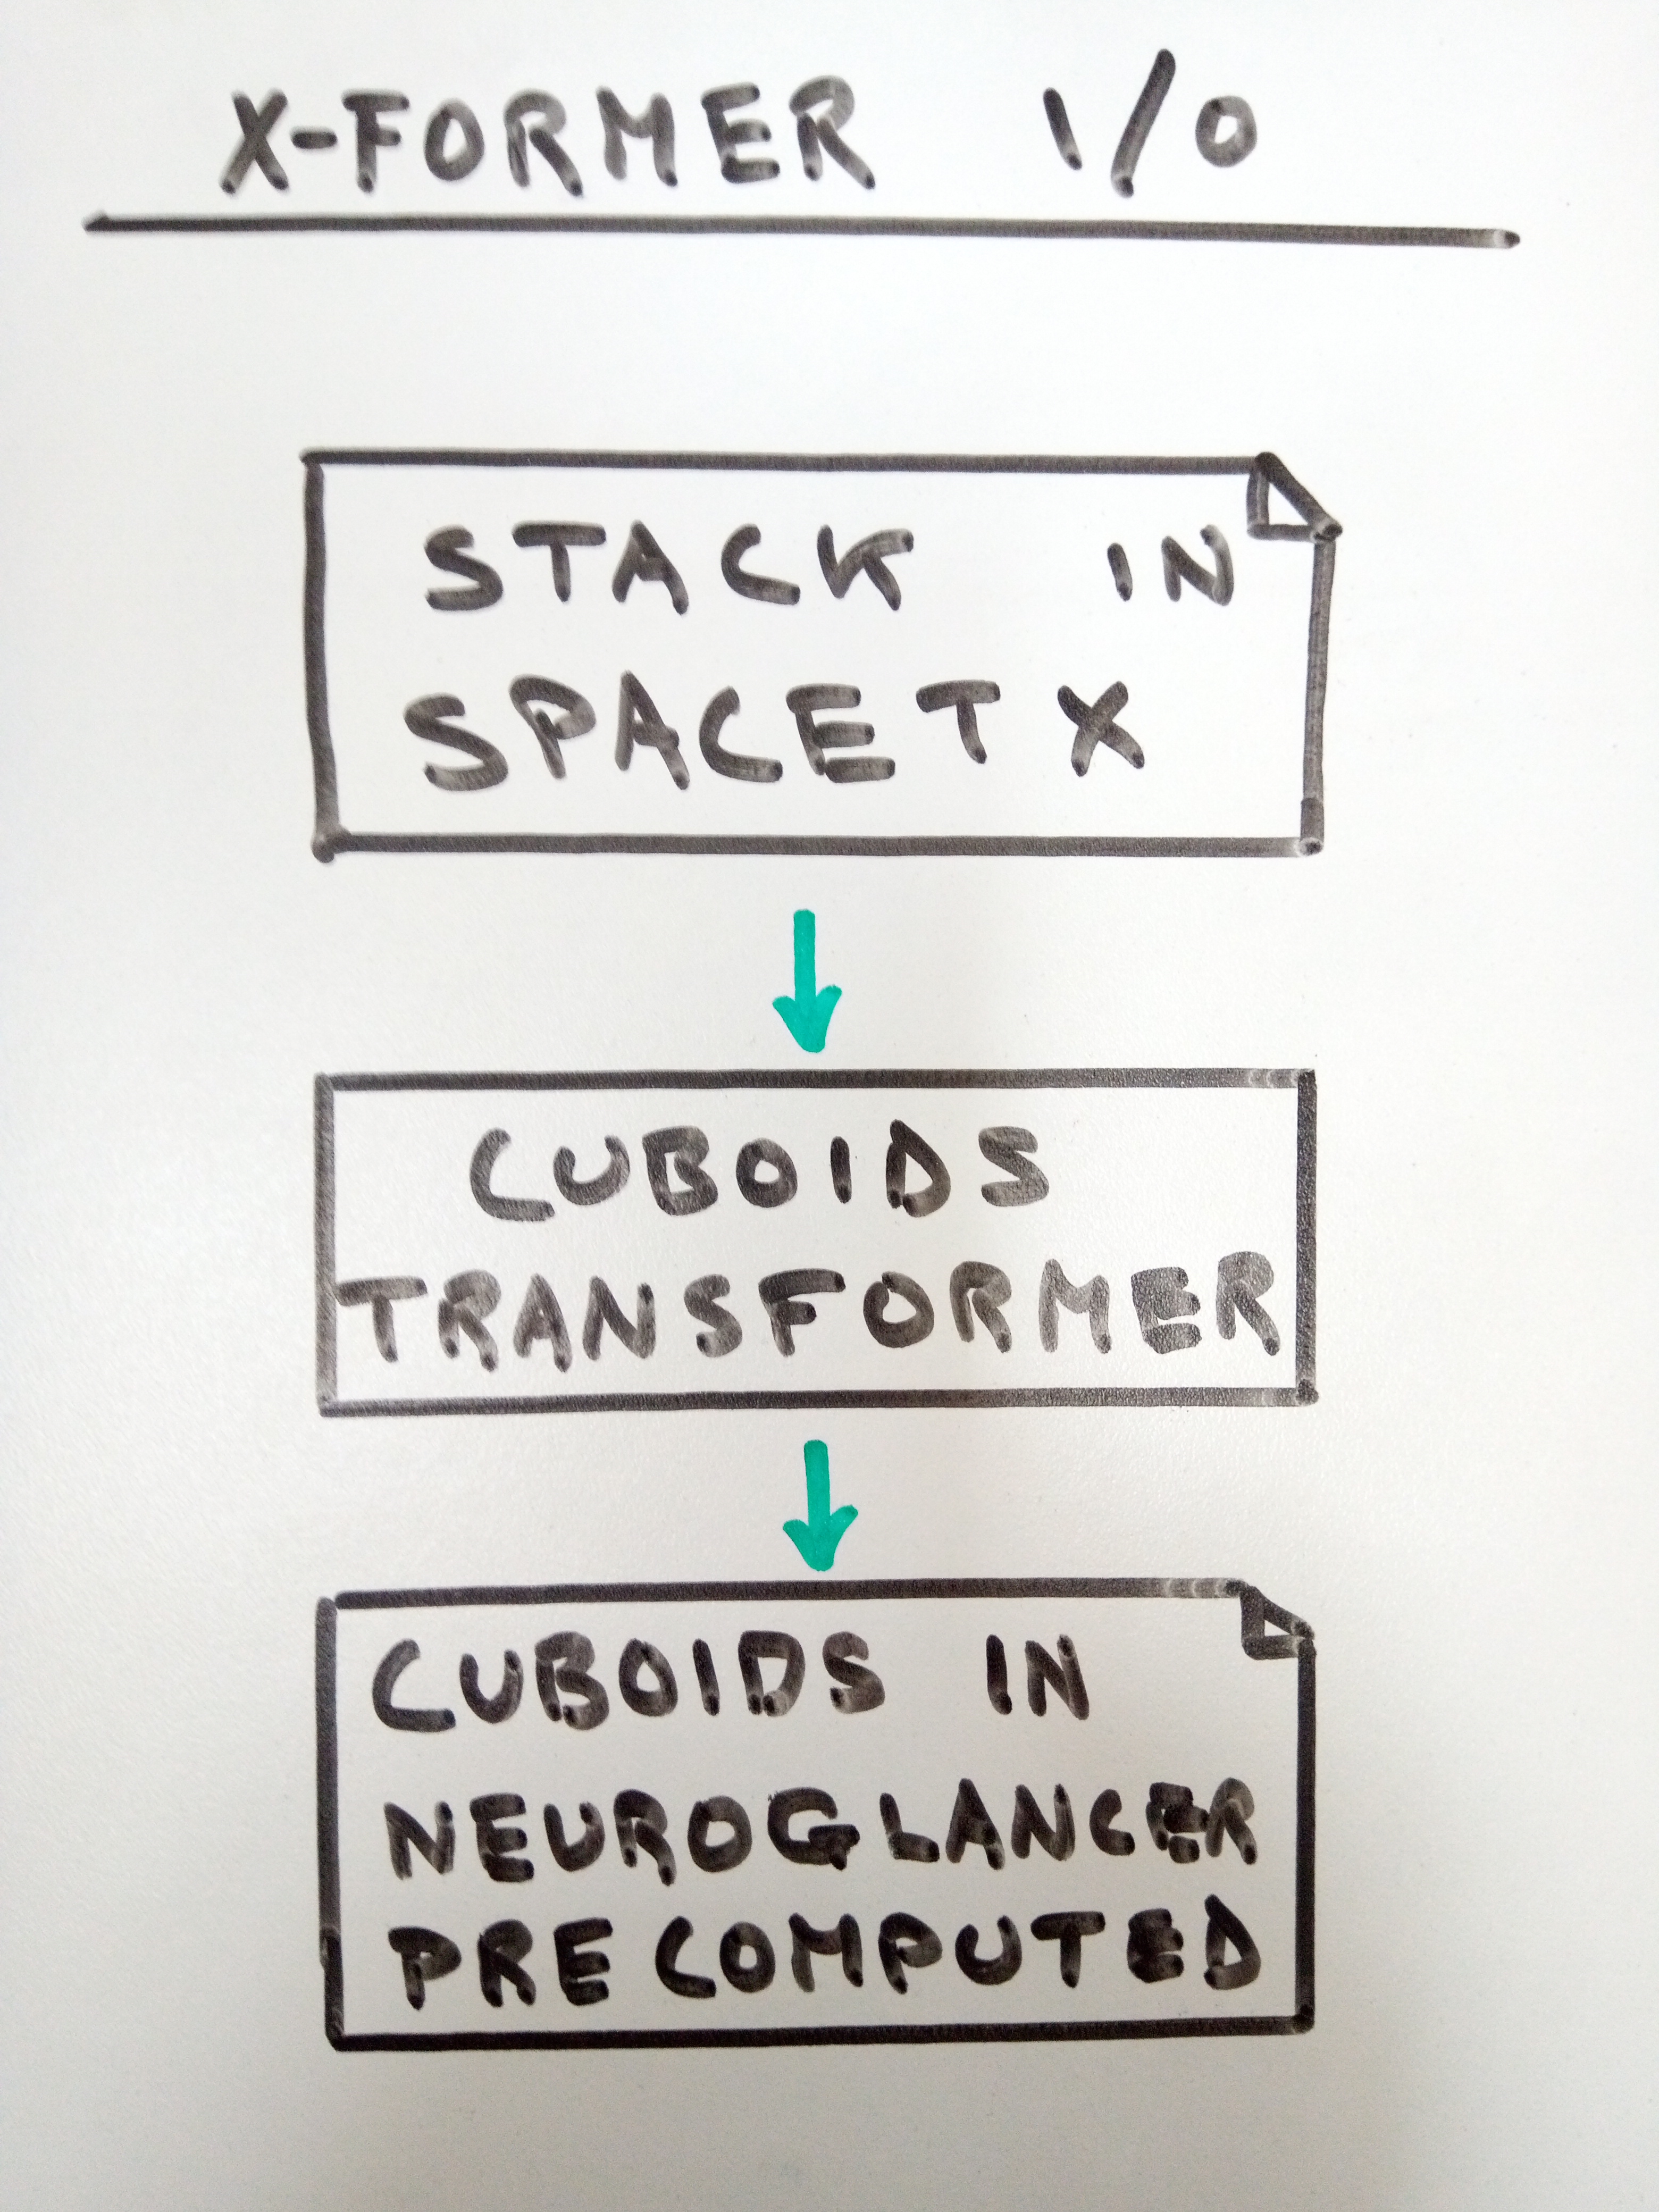 X-FORMER I/O
STACK IN
SPACETX
CUBOIDS
TRANSFORMER
CUBOIDS IN
NEUROGLANCER
PRECOMPUTED